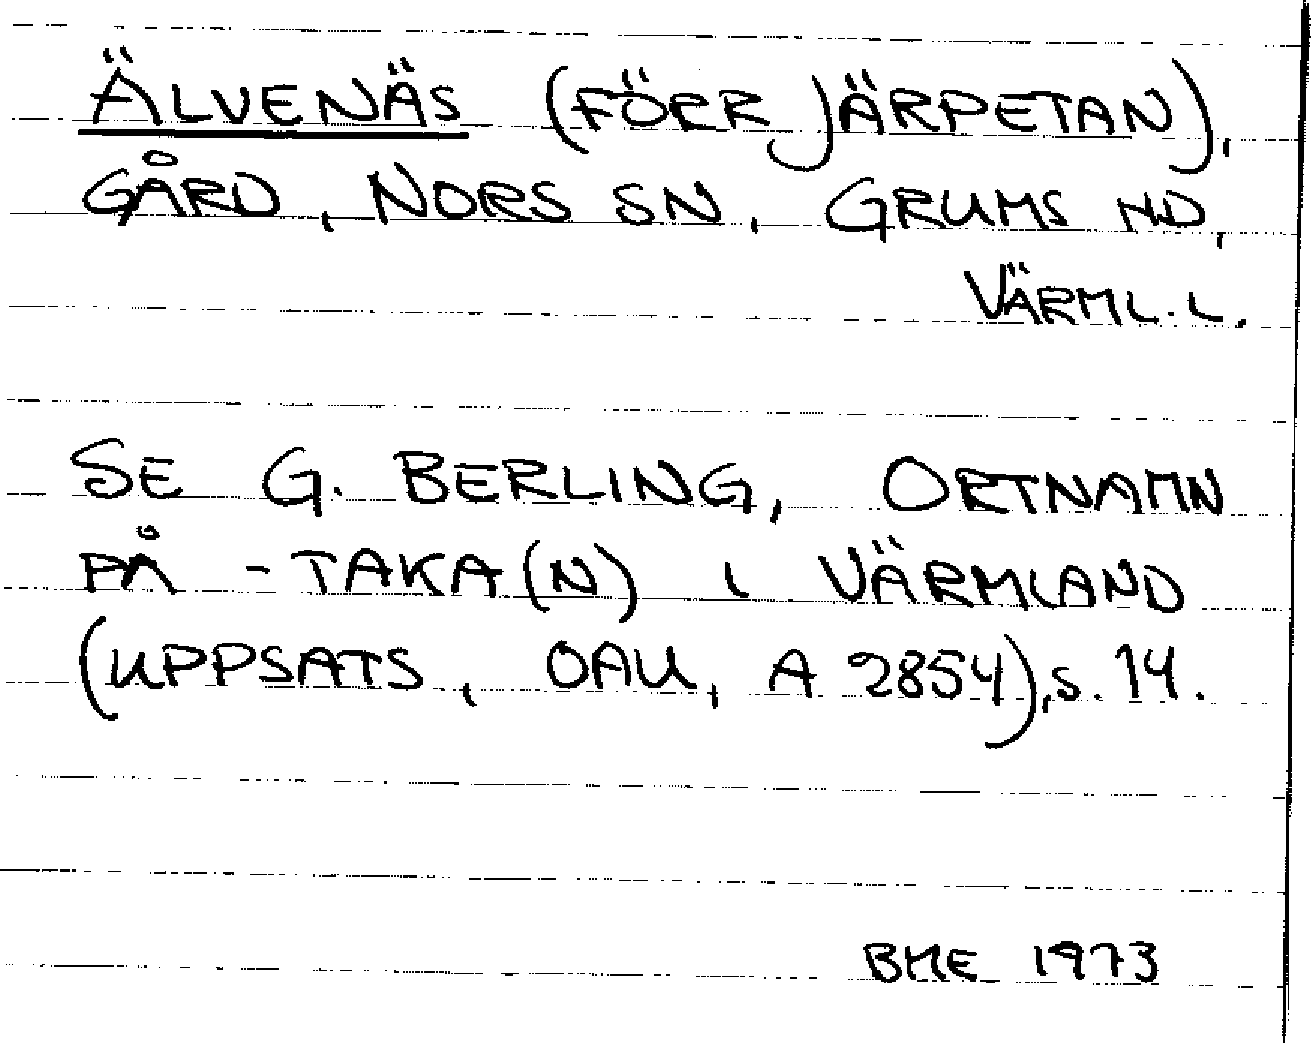 ÄLVENÄS (FÖRR JÄRPETAN),
GÅRD, NORS SN, GRUMS HD,
VÄRML.L.
SE G. BERLING, ORTNAMN
PÅ -TAKA(N) I VÄRMLAND
(UPPSATS, OAU, A 2854), S. 14.
BME 1973